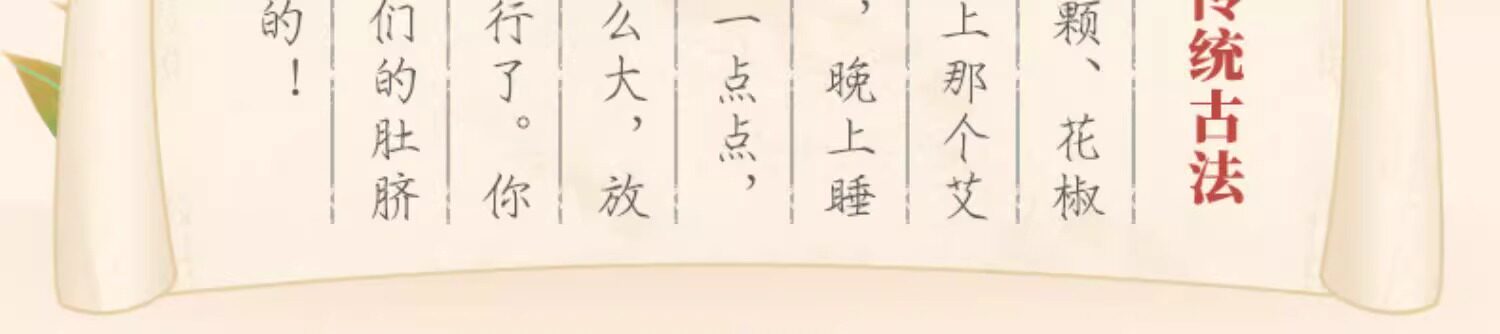 传统古法
颗、花椒
上那个艾
，晚上睡
一点点，
么大，放
行了。你
们的肚脐
的！